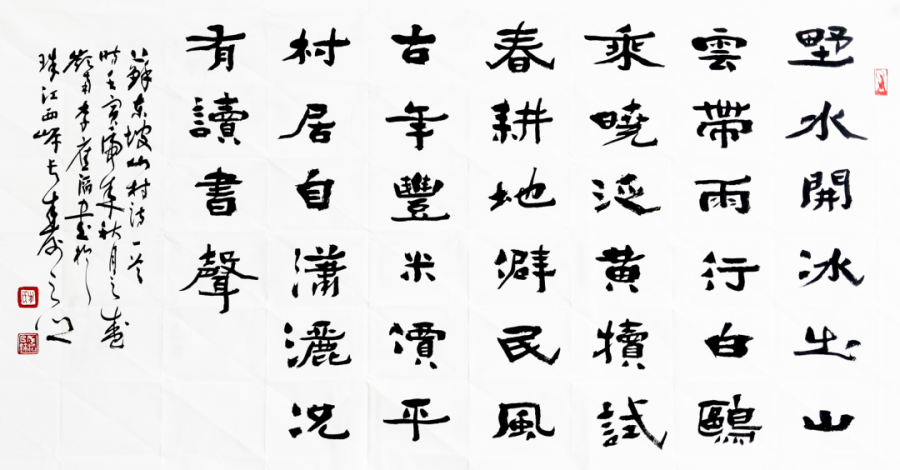 野水開冰出山
雲帶雨行白鷗
乘曉泛黃犢試
春耕地僻民風
古年豐米價平
村居自瀟灑況
有讀書聲
蘇東坡山村詩一首
時壬寅虎年秋月之
嶺南李應書於
珠江西岸